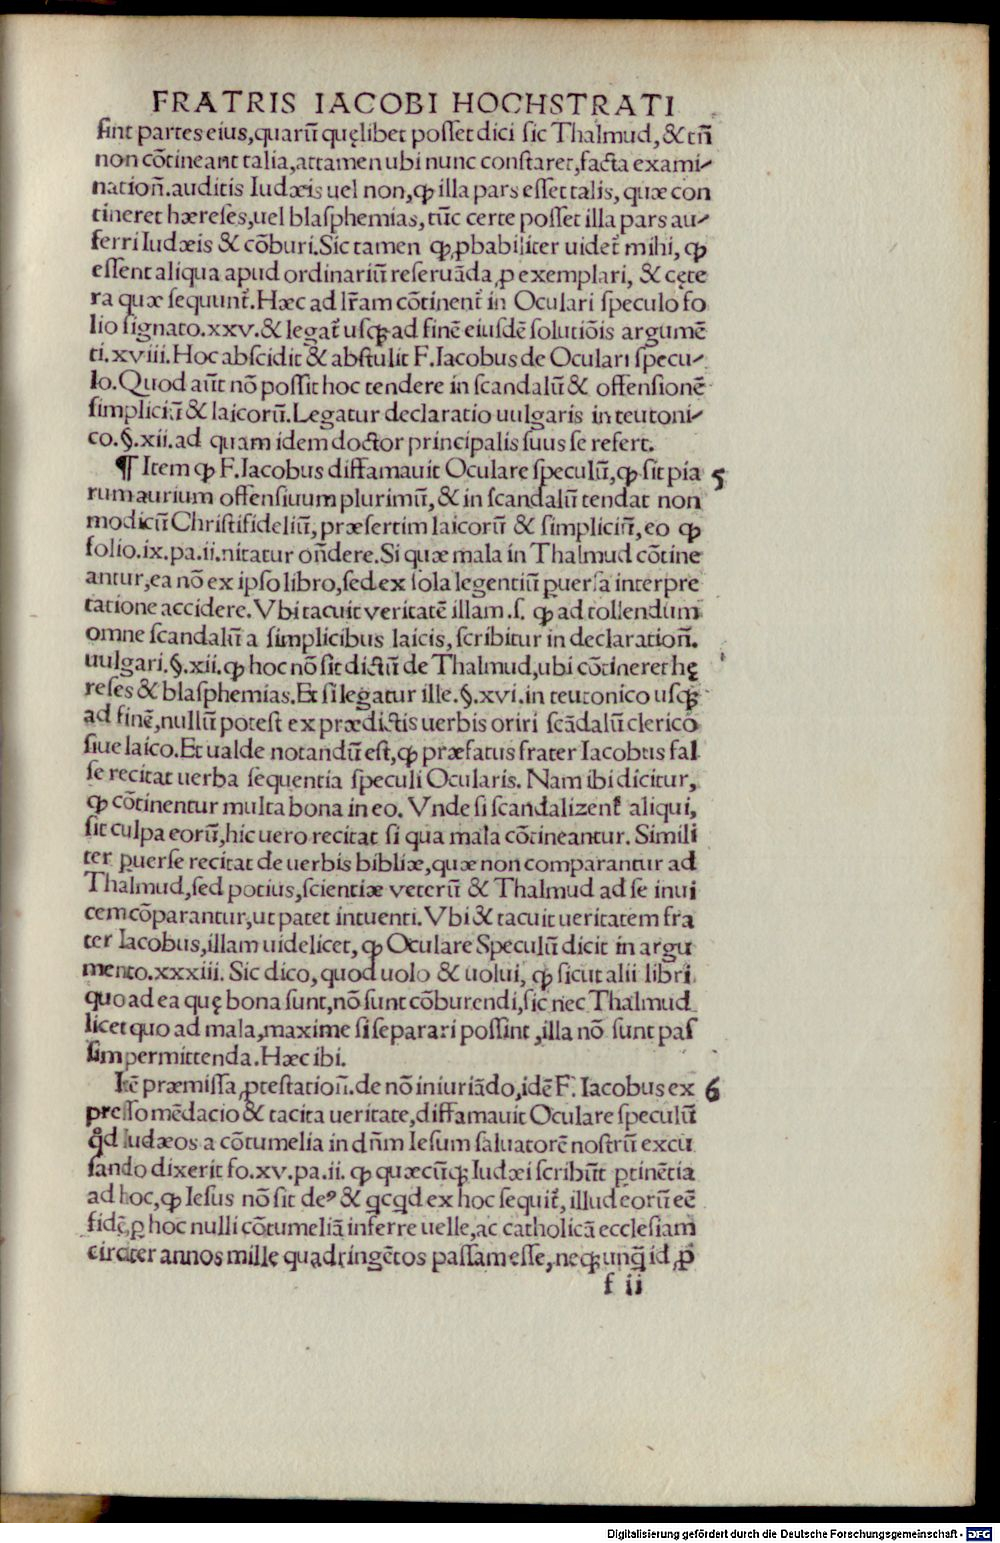 FRATRIS IACOBI HOCHSTRATI
sint partes eius,quarū quęlibet posset dici sic Thalmud,& tñ
non cōtineant talia,attamen ubi nunc constaret,facta exami-
natioñ.auditis Iudæis uel non,ꝙ illa pars esset talis, quæ con
tineret hæreses,uel blasphemias, tūc certe posset illa pars au-
ferri Iudæis & cōburi.Sic tamen ꝙ,ꝓbabiliter uidet᷑ mihi, ꝙ
essent aliqua apud ordinariū reseruāda,ꝓ exemplari, & cęte
ra quæ sequunt᷑.Hæc ad lr̄am cōtinent᷑ in Oculari speculo fo
lio signato.xxv.& legat᷑ usq̷ ad finē eiusdē solutiōis argumē
ti.xviii.Hoc abscidit & abstulit F.Iacobus de Oculari specu-
lo.Quod aūt nō possit hoc tendere in scandalū & offensionē
simpliciū & laicorū.Legatur declaratio uulgaris in teutoni-
co.§.xii.ad quam idem doctor principalis suus se refert.
¶ Item ꝙ F.Iacobus diffamauit Oculare speculū,ꝙ sit pia 5
rum aurium offensiuum plurimū, & in scandalū tendat non
modicū Christifideliū, præsertim laicorū & simpliciū, eo ꝙ
folio.ix.pa.ii.nitatur on̄dere.Si quæ mala in Thalmud cōtine
antur,ea nō ex ipso libro,sed ex sola legentiū ꝑuersa interpre
tatione accidere. Vbi tacuit veritatē illam.s. ꝙ ad tollendum
omne scandalū a simplicibus laicis, scribitur in declaratioñ.
uulgari.§.xii.ꝙ hoc nō sit dictū de Thalmud,ubi cōtineret hę
reses & blasphemias.Et si legatur ille.§.xvi.in teutonico usq̷
ad finē,nullū potest ex prædictis uerbis oriri scādalū clerico
siue laico.Et ualde notandū est,ꝙ præfatus frater Iacobus fal
se recitat uerba sequentia speculi Ocularis. Nam ibi dicitur,
ꝙ cōtinentur multa bona in eo. Vnde si scandalizent᷑ aliqui,
sit culpa eorū,hic uero recitat si qua mala cōtineantur. Simili
ter ꝑuerse recitat de uerbis bibliæ,quæ non comparantur ad
Thalmud,sed potius,scientiæ veterū & Thalmud ad se inui
cem cōparantur,ut patet intuenti. Vbi & tacuit ueritatem fra
ter Iacobus,illam uidelicet, ꝙ Oculare Speculū dicit in argu
mento.xxxiii. Sic dico, quod uolo & uolui, ꝙ sicut alii libri
quo ad ea quę bona sunt,nō sunt cōburendi,sic nec Thalmud
licet quo ad mala,maxime si separari possint ,illa nō sunt pas
sim permittenda.Hæc ibi.
Itē præmissa,ꝓtestatioñ.de nō iniuriādo,idē F. Iacobus ex 6
presso mēdacio & tacita ueritate,diffamauit Oculare speculū
qd̊ Iudæos a cōtumelia in dn̄m Iesum saluatorē nostrū excu
sando dixerit fo.xv.pa.ii. ꝙ quæcūq̷ Iudæi scribūt ꝑtinētia
ad hoc,ꝙ Iesus nō sit deꝰ & qcqd ex hoc sequit᷑, illud eorū eē
fidē,ꝑ hoc nulli cōtumeliā inferre uelle, ac catholicā ecclesiam
circiter annos mille quadringētos passam esse, neq̷ unq̄ id,ꝓ
f ii
Digitalisierung gefördert durch die Deutsche Forschungsgemeinschaft - DFG